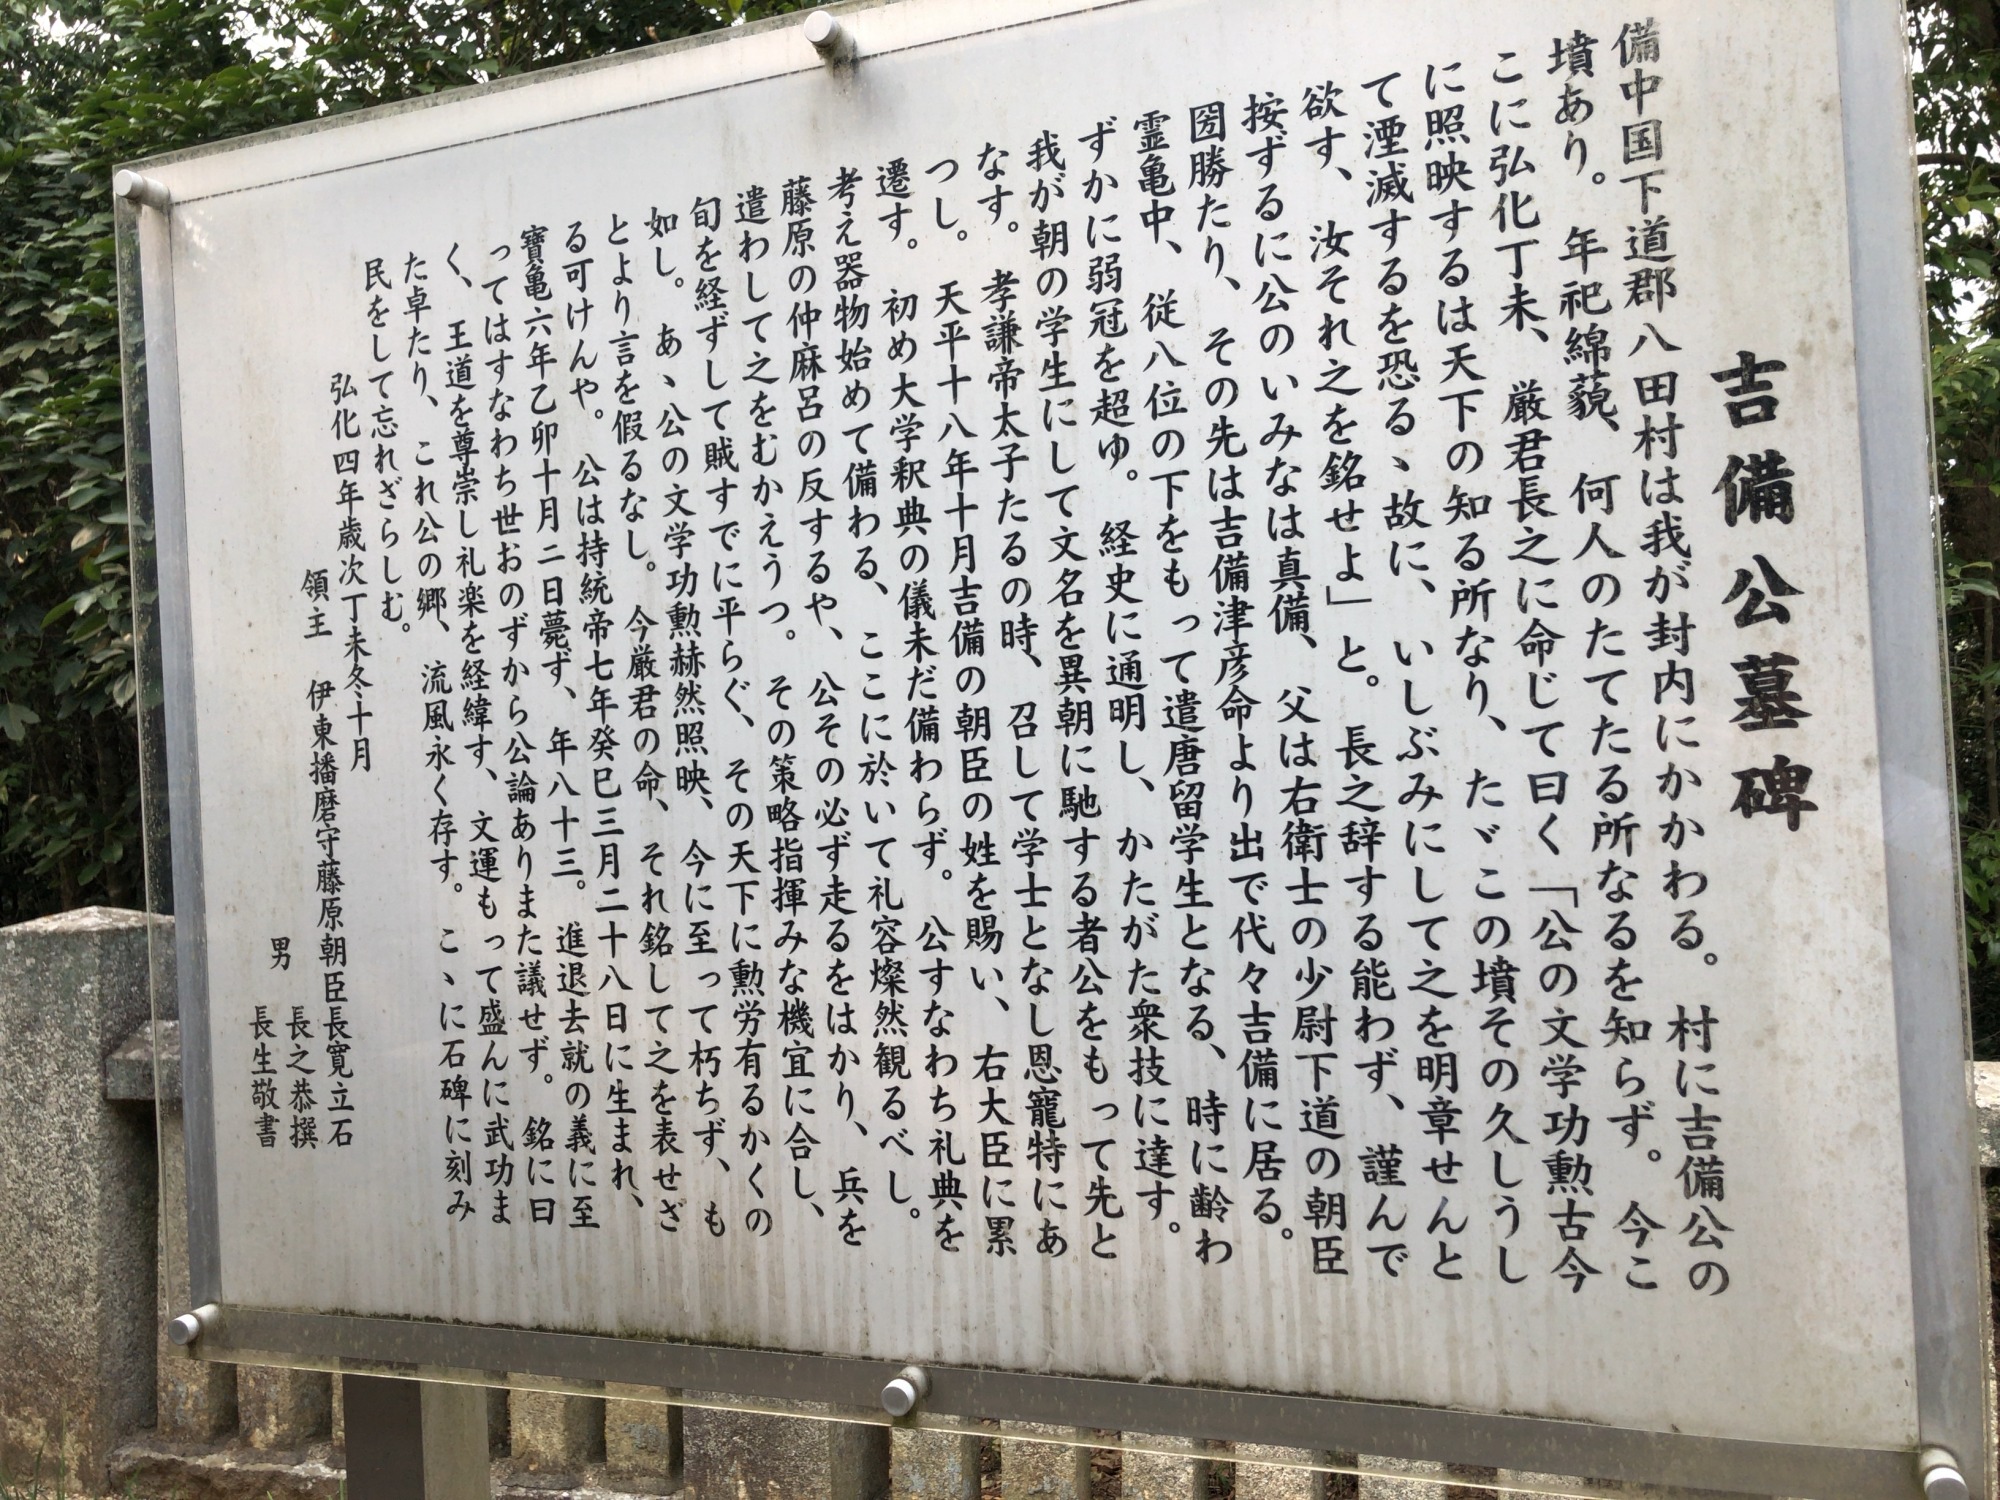 吉備公墓碑
備中国下道郡八田村は我が封内にかかわる。村に吉備公の
墳あり。年祀綿藐、何人のたてたる所なるを知らず。今こ
こに弘化丁未、厳君長之に命じて曰く「公の文学功勲古今
に照映するは天下の知る所なり、たゞこの墳その久しうし
て湮滅するを恐るヽ故に、いしぶみにして之を明章せんと
欲す、汝それ之を銘せよ」と。長之辞する能わず、謹んで
按ずるに公のいみなは真備、父は右衛士の少尉下道の朝臣
圀勝たり、その先は吉備津彦命より出で代々吉備に居る。
霊亀中、従八位の下をもって遣唐留学生となる、時に齢わ
ずかに弱冠を超ゆ。経史に通明し、かたがた衆技に達す。
我が朝の学生にして文名を異朝に馳する者公をもって先と
なす。孝謙帝太子たるの時、召して学士となし恩寵特にあ
つし。天平十八年十月吉備の朝臣の姓を賜い、右大臣に累
遷す。初め大学釈典の儀未だ備わらず。公すなわち礼典を
考え器物始めて備わる、ここに於いて礼容燦然観るべし。
藤原の仲麻呂の反するや、公その必ず走るをはかり、兵を
遣わして之をむかえうつ。その策略指揮みな機宜に合し、
旬を経ずして賊すでに平らぐ、その天下に勲労有るかくの
如し。あヽ公の文学功勲赫然照映、今に至って朽ちず、も
とより言を假るなし。今厳君の命、それ銘して之を表せざ
る可けんや。公は持統帝七年癸巳三月二十八日に生まれ、
寶亀六年乙卯十月二日薨ず、年八十三。進退去就の義に至
ってはすなわち世おのずから公論ありまた議せず。銘に曰
く、王道を尊崇し礼楽を経緯す、文運もって盛んに武功ま
た卓たり、これ公の郷、流風永く存す。こヽに石碑に刻み
民をして忘れざらしむ。
弘化四年歳次丁未冬十月
領主　伊東播磨守藤原朝臣長寛立石
男　長之恭撰
長生敬書